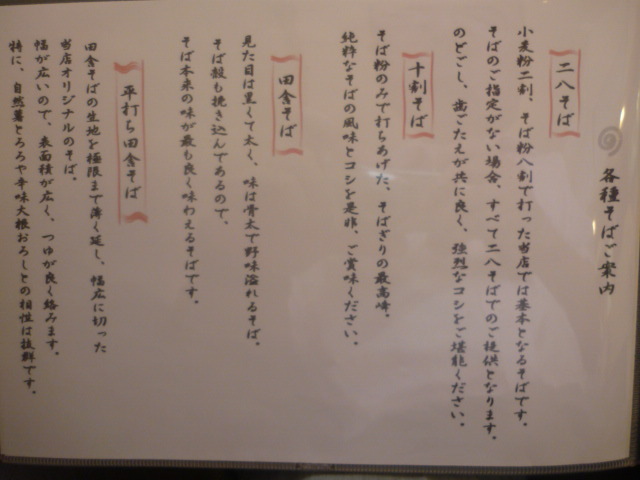 各種そばご案内
二八そば
小麦粉二割、そば粉八割で打った当店では基本となるそばです。
そばのご指定がない場合、すべて二八そばでのご提供となります。
のどごし、歯ごたえが共に良く、強烈なコシをご堪能ください。
十割そば
そば粉のみで打ちあげた、そばぎりの最高峰。
純粋なそばの風味とコシを是非、ご賞味ください。
田舎そば
見た目は黒くて太く、味は骨太で野味溢れるそば。
そば殻も挽き込んであるので、
そば本来の味が最も良く味わえるそばです。
平打ち田舎そば
田舎そばの生地を極限まで薄く延し、幅広に切った
当店オリジナルのそば。
幅が広いので、表面積が広く、つゆが良く絡みます。
特に、自然薯とろろや辛味大根おろしとの相性は抜群です。